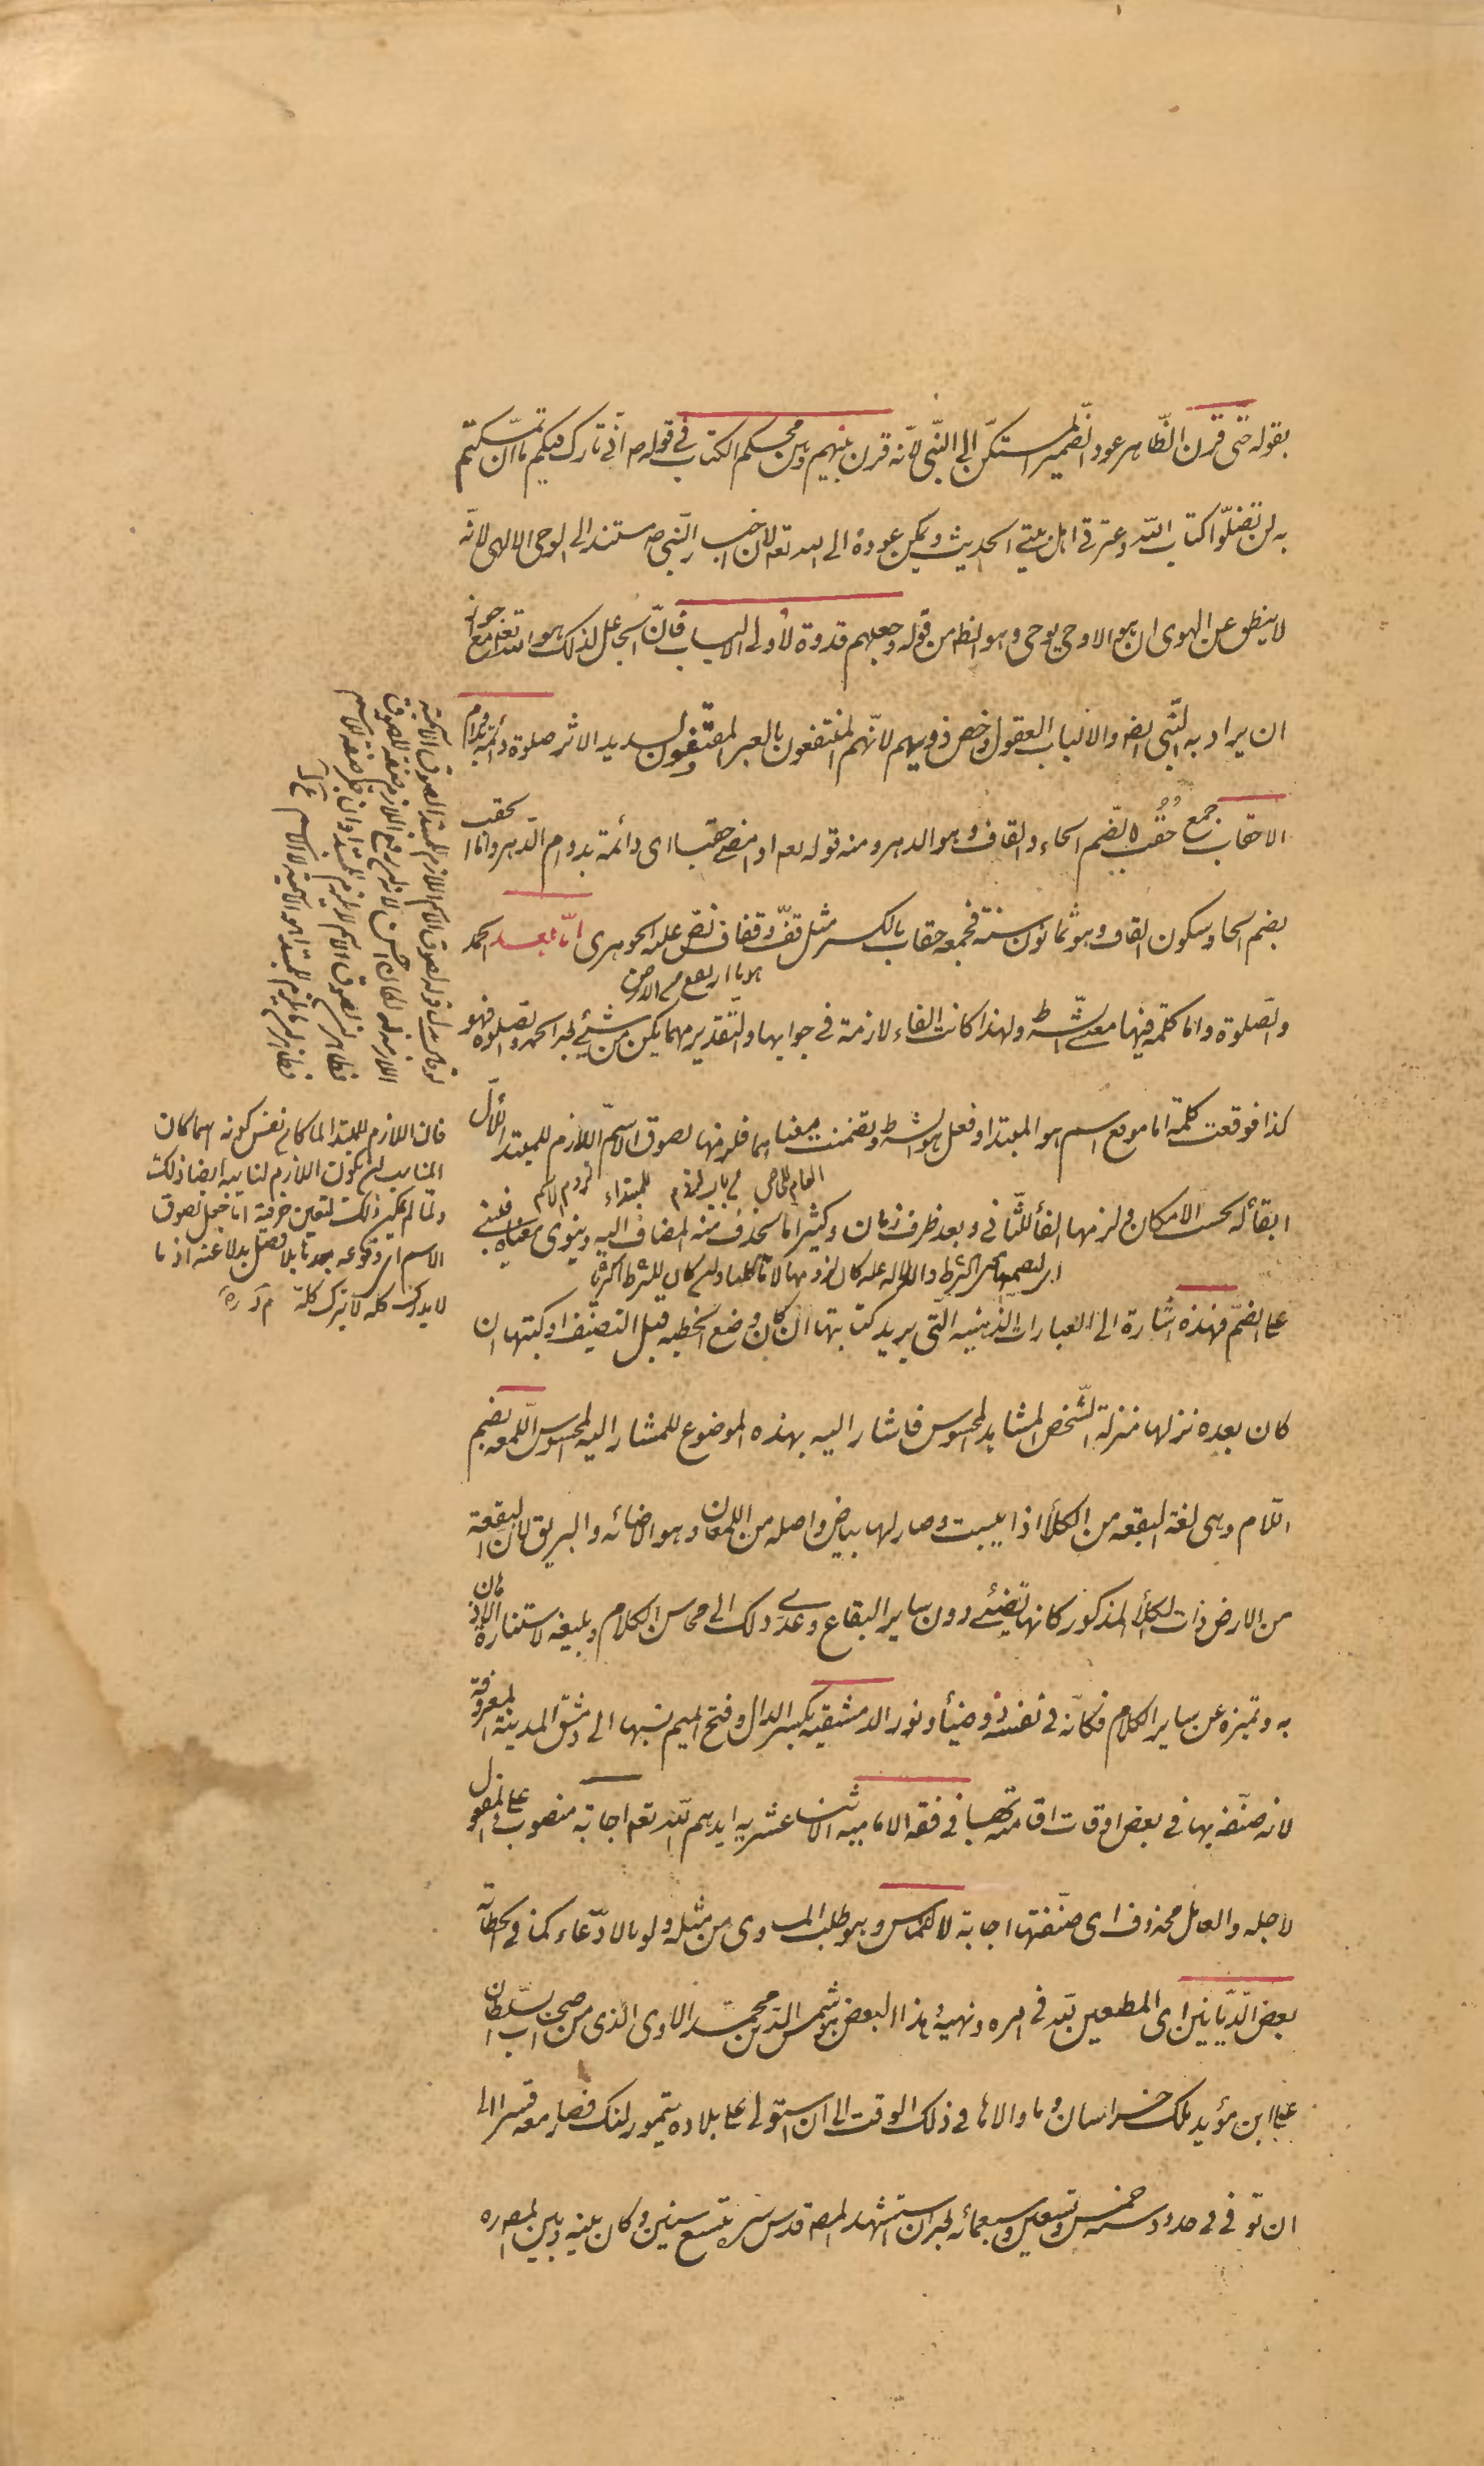 بقوله حتى قرن الظاهر عود الضمير المستكن الى النبى لانه قرن بينهم وبين محكم الكتاب فى قوله ص انى تارك فيكم ما ان تمسكتم
به لن تضلوا كتاب الله وعترتى اهل بيتى الحديث ويمكن عوده الى الله تعه لان اخبار النبى ص مستند الى الوحى الالهى لانه
لا ينطق عن الهوى ان هو الا وحى يوحى وهو الظ من قوله وجعلهم قدوة لاولى الالباب فان الجاعل لذلك هو الله تعه مع جواز
ان يراد به النبى ايضه والالباب العقول وخص ذويهم لانهم المنتفعون بالعبر المقتفون لسديد الاثر صلوة دائمة بدوام
الاحقاب جمع حُقُب بضم الحاء والقاف وهو الدهر ومنه قوله تعه او امضى حقبا اى دائمة بدوام الدهر واما الحقب
بضم الحا وسكون القاف وهو ثمانون سنة فجمعه حقاب بالكسر مثل قف وقفاف نص عليه الجوهرى اما بعد الحمد
والصلوة واما كلمة فيها معنى الشرط ولهذا كانت الفاء لازمة فى جوابها والتقدير مهما يكن من شئ بعد الحمد والصلوة فهو
كذا فوقعت كلمة اما موقع اسم هو المبتدا وفعل هو الشرط وتضمنت معناهما فلزمها لصوق الاسم اللازم للمبتدا للاول
ابقاء له بحسب الامكان ولزمها الفاء للثانى وبعد ظرف زمان وكثيرا ما يحذف منه المضاف اليه وينوى معناه فيبنى
على الضم فهذه اشارة الى العبارات الذهنيه التى يريد كتابتها ان كان وضع الخطبه قبل التصنيف او كتبتها ان
كان بعده نزلها منزلة الشخص المشاهد المحسوس فاشار اليه بهذه الموضوع للمشار اليه المحسوس اللمعه بضم
اللام وهى لغة البقعه من الكلأ اذا يبست وصار لها بياض واصله من اللمعان وهو الاضائه والبريق لان البقعة
من الارض ذات الكلأ المذكور كانها تضئ دون ساير البقاع وعدى ذلك الى محاسن الكلام وبليغه لاستنارة الاذهان
به وتميزه عن ساير الكلام فكانه فى نفسه ذو ضيأ ونور الدمشقيه بكسر الدال وفتح الميم نسبها الى دمشق المدينة المعروفة
لانه صنفه بها فى بعض اوقات اقامته بها فى فقه الاماميه الاثنا عشريه ايدهم الله تعه اجابة منصوب على المفعول
لاجله والعامل محذوف اى صنفتها اجابة لالتماس وهو طلب المساوى من مثله ولو بالادعاء كما فى الخطابه
بعض الديانين اى المطيعين لله فى امره ونهيه وهذا البعض هو شمس الدين محمد الاوى الذى من اصحاب السلطان
على ابن مؤيد ملك خراسان وما والاها فى ذلك الوقت الى ان استولى على بلاده تيمور لنك فصار معه قسرا الى
ان توفى فى حدود سنة خمس وتسعين وسبعمائه بعد ان استشهد المصه قدس سره بتسع سنين وكان بينه وبين المصه ره
فان اللازم للمبتدا لما كان نفس كونه اسما كان
المناسب ان يكون اللازم لنايبه ايضا ذلك
ولما لم يمكن ذلك لتعين حرفية اما جعل لصوق
الاسم اى وقوعه بعدها بلا فصل بدلا عنه اذ ما
لا يدرك كله لا يترك كله